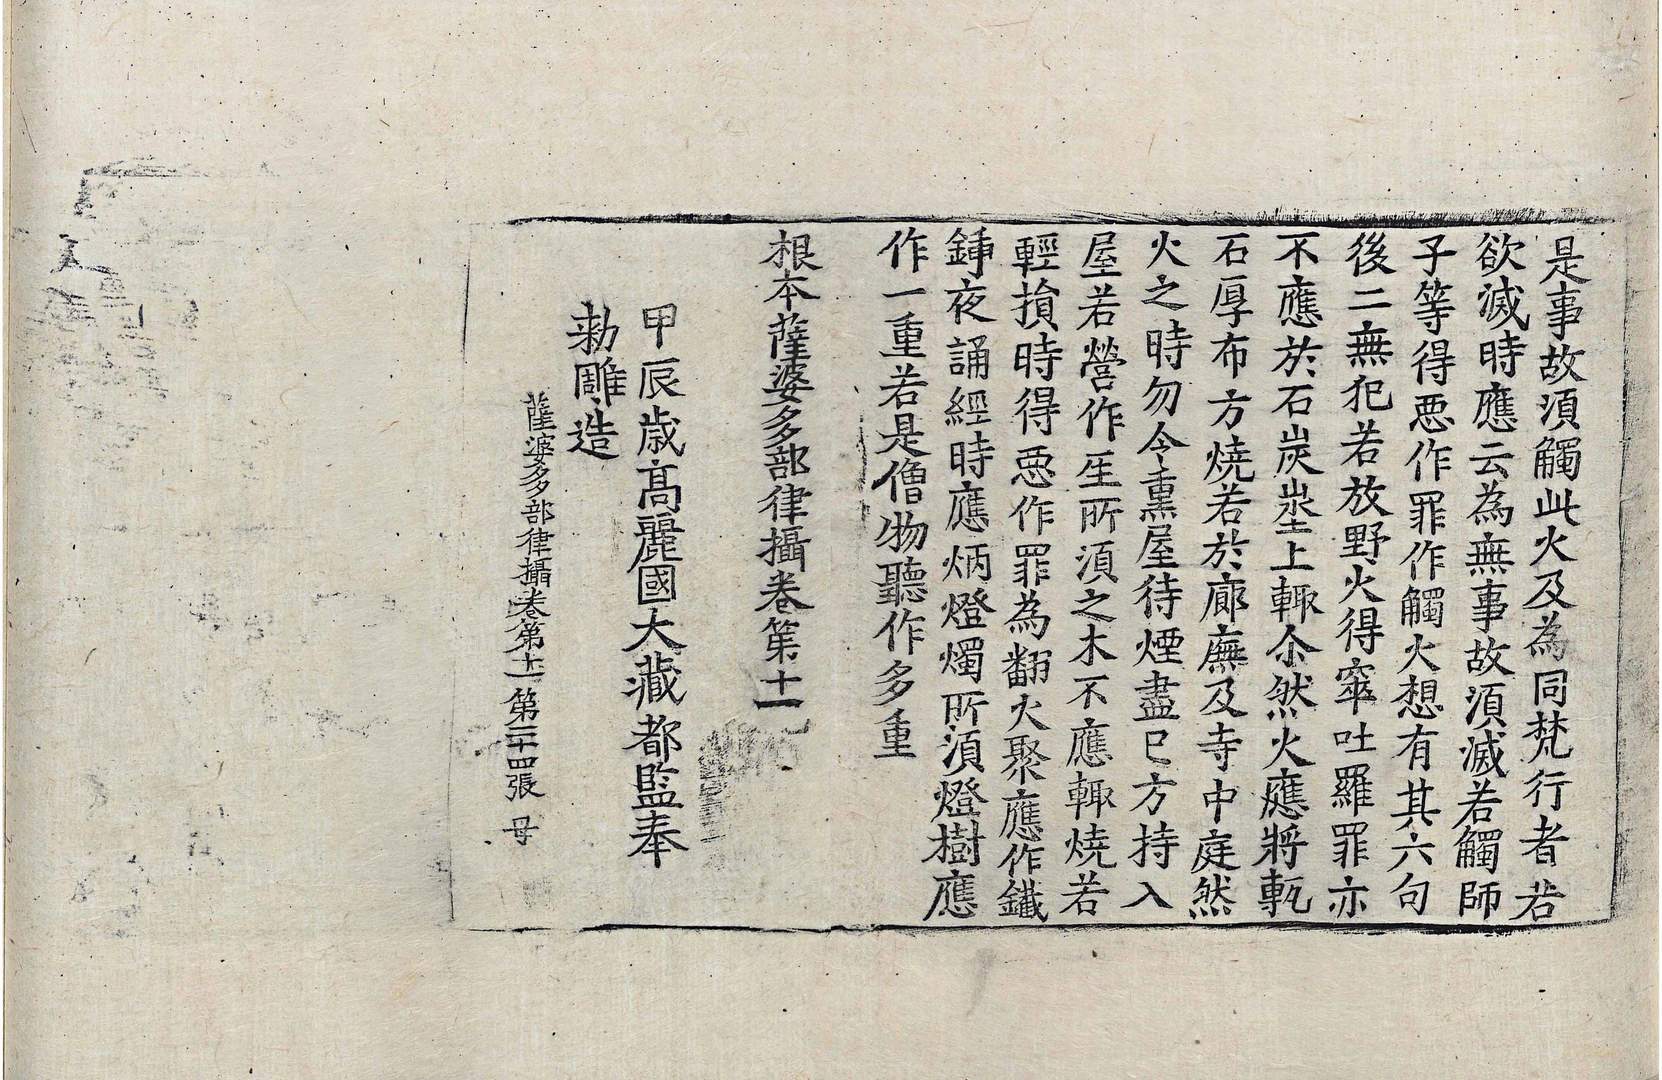 是事故須觸此火及為同梵行者若
欲滅時應云為無事故須滅若觸師
子等得惡作罪作觸火想有其六句
後二無犯若放野火得窣吐羅罪亦
不應於石炭坣上輙尒然火應將甎
石厚布方燒若於廊廡及寺中庭然
火之時勿令熏屋待煙盡已方持入
屋若營作生所須之木不應輙燒若
輕損時得惡作罪為翻火聚應作鐵
鍤夜誦經時應炳燈燭所須燈樹應
作一重若是僧物聽作多重
根本薩婆多部律攝卷第十一
甲辰歲高麗國大藏都監奉
勅雕造
薩婆多部律攝卷第十一 第二十四張 母